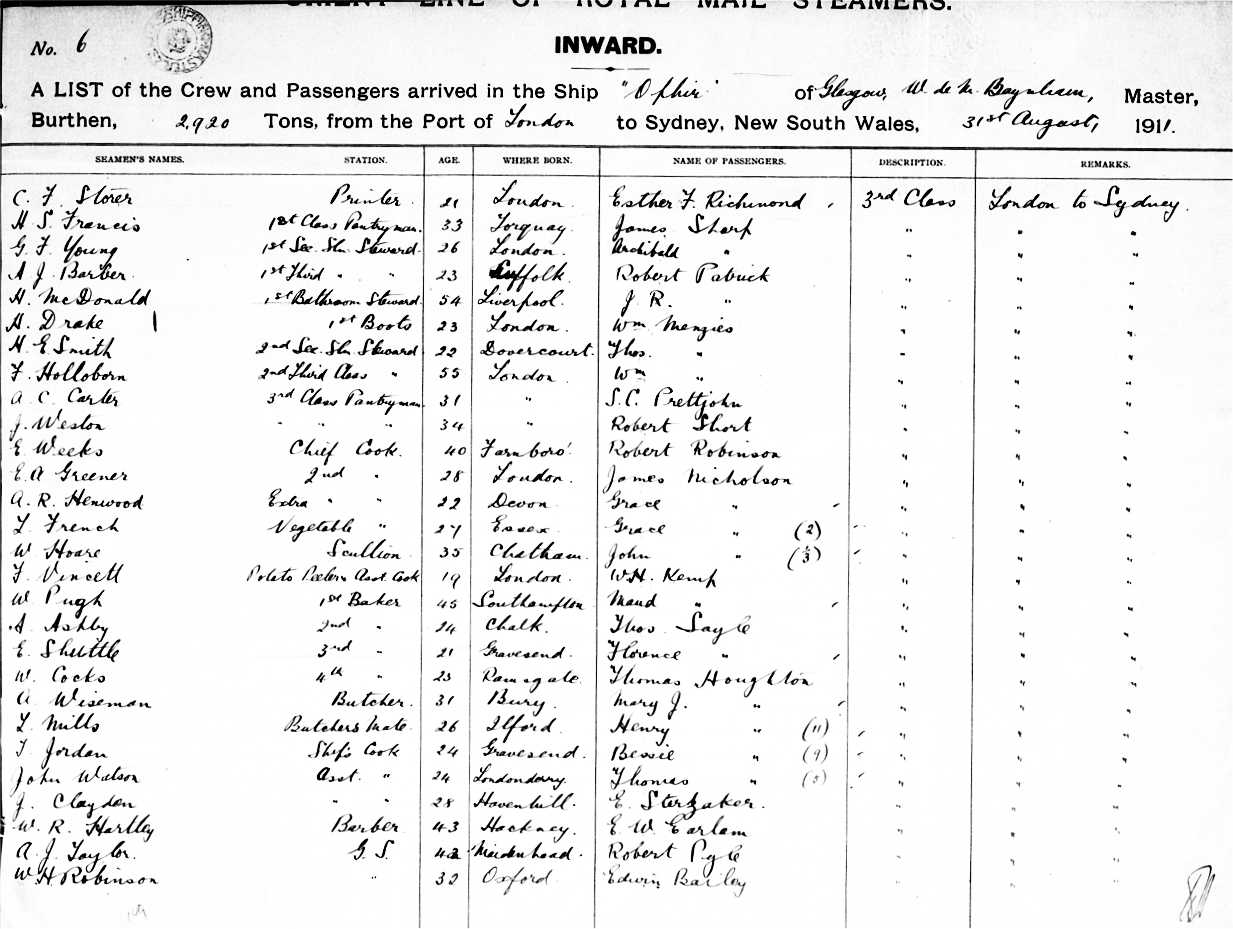 ORIENT LINE OF ROYAL MAIL STEAMERS.
No. 6
INWARD.
A LIST of the Crew and Passengers arrived in the Ship "Ophir" of Glasgow, W. de M. Baynham, Master,
Burthen, 2,920 Tons, from the Port of London to Sydney, New South Wales, 31st August, 1911.
SEAMEN'S NAMES. STATION. AGE. WHERE BORN. NAME OF PASSENGERS. DESCRIPTION. REMARKS.
C. F. Storer Printer. 21 London. Esther F. Richmond 3rd Class London to Sydney.
H. S. Francis 1st Class Pantryman. 33 Torquay. James Sharp " " "
G. F. Young 1st Sec. Sln. Steward. 26 London. Archibald " " " "
A. J. Barber. 1st Third " " 23 Suffolk. Robert Pabuck " " "
H. McDonald 1st Bathroom Steward. 54 Liverpool. J. R. " " " "
H. Drake 1st Boots 23 London. Wm Menzies " " "
H. E. Smith 2nd Sec. Sln. Steward 22 Dovercourt. Thos. " " " "
F. Holloborn 2nd Third Class " 55 London. Wm " " " "
A. C. Carter 3rd Class Pantryman. 31 " S. C. Prettjohn " " "
J. Weston " " " 34 " Robert Short " " "
E. Weeks Chief Cook. 40 Farnboro' Robert Robinson " " "
E. A Greener 2nd " 28 London. James Nicholson " " "
A. R. Henwood Extra " " 22 Devon Grace " " " "
L. French Vegetable " 27 Essex Grace " (2) " " "
W Hoare Scullion 35 Chatham. John " (3) " " "
F. Vincett Potato Peeler & Asst Cook 19 London. W. H. Kemp " " "
W. Pugh 1st Baker 45 Southampton Maud " " " "
A. Ashby 2nd " 24 Chalk. Thos Sayle " " "
E. Shuttle 3rd " 21 Gravesend. Florence " " " "
W. Cocks 4th " 23 Ramsgate. Thomas Houghton " " "
A Wiseman Butcher. 31 Bury. Mary J. " " " "
L. Mills Butchers Mate. 26 Ilford. Henry " (11) " " "
T. Jordan Ship's Cook 24 Gravesend. Bessie " (9) " " "
John Watson Asst. " 24 Londonderry. Thomas " (5) " " "
J. Clayden " " 28 Havenhill. E. Sterzaker. " " "
W. R. Hartley Barber 43 Hackney. E. W. Earlam " " "
A. J. Taylor. G. S. 42 Maidenhead. Robert Pyle " " "
W. H. Robinson " 32 Oxford. Edwin Bailey " " "